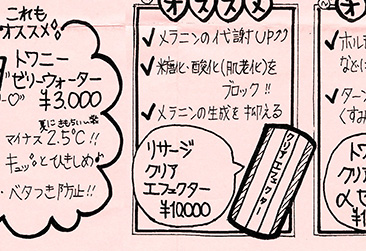 これも
オススメ
トワニー
ゼリーウォーター
¥3,000
夏にきもちぃ〜
マイナス2.5℃!!
キュッとひきしめ
・ベタつき防止!!
オススメ
✓メラニンの代謝UP↗↗
✓糖化・酸化(肌老化)を
ブロック!!
✓メラニンの生成を抑える
リサージ
クリア
エフェクター
¥10,000
クリアエフェクター
オ
✓ホル
などに
✓ターン
くすみ
トワ
クリア
αセ
¥1